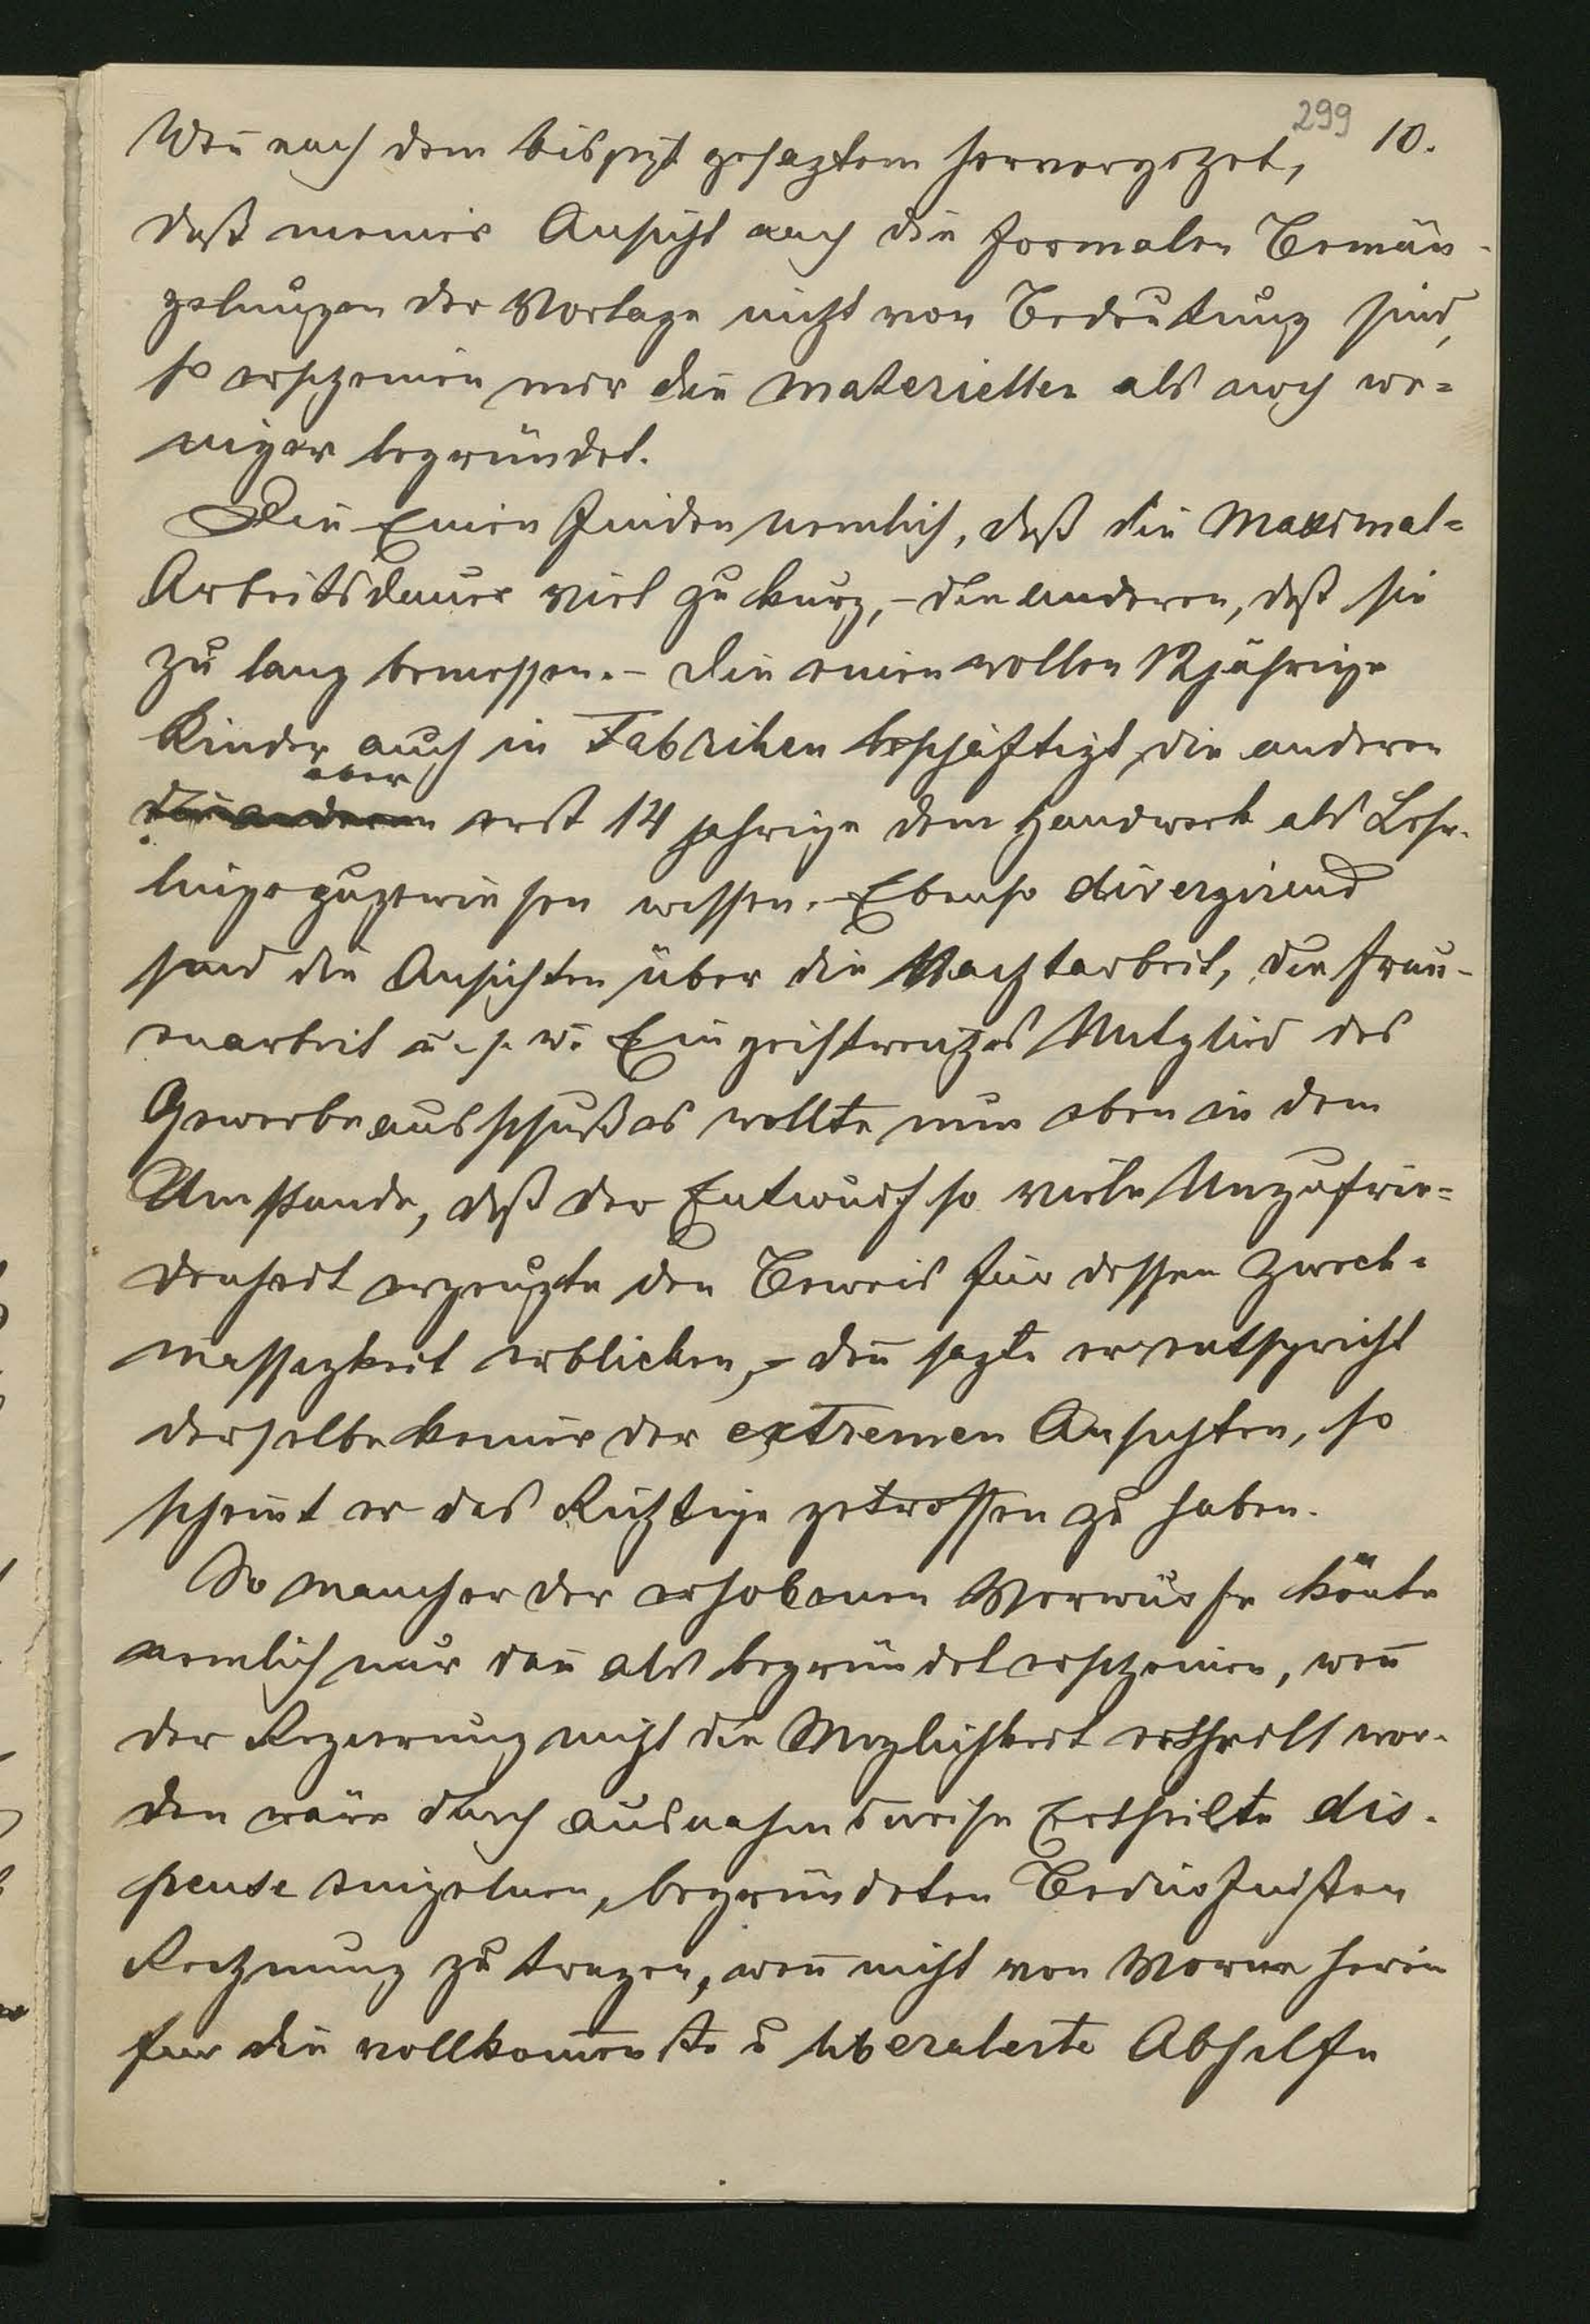 299 10.
Weñ nach dem bisjezt gesagtem hervorgehet,
daß meiner Ansicht nach die formalen Bemän-
gelungen der Vorlage nicht von Bedeutung sind,
so erscheinen mir die materiellen als noch we=
niger begründet.
Die Einen finden nemlich, daß die Maximal=
Arbeitsdauer viel zu kurz, – die anderen, daß sie
zu lang bemessen. – Die einen wollen 12jährige
Kinder auch in Fabriken beschäftigt, die anderen
aber
die anderen erst 14 jahrige dem Handwerk als Lehr-
linge zugewiesen wissen. – Ebenso divergirend
sind die Ansichten über die Nachtarbeit, die Frau-
enarbeit u. s. w. Ein geistreiches Mitglied des
Gewerbeausschußes wollte nun eben in dem
Umstande, daß der Entwurf so viele Unzufrie=
denheit erzeugte den Beweis für dessen Zweck=
massigkeit erblicken, – deñ sagte er entspricht
derselbe keiner der extremen Ansichten, so
scheint er das Richtige getroffen zu haben.
So mancher der erhobenen Vorwürfe köñte
nemlich nur dañ als begründet erscheinen, weñ
der Regierung nicht die Moglichkeit ertheilt wor-
den wäre durch ausnahmsweise Ertheilte dis-
pense einzelnen, begründeten Bedürfnissen
Rechnung zu tragen, weñ nicht von Vorne herein
fur die vollkom̄enste u liberaleste Abhilfe